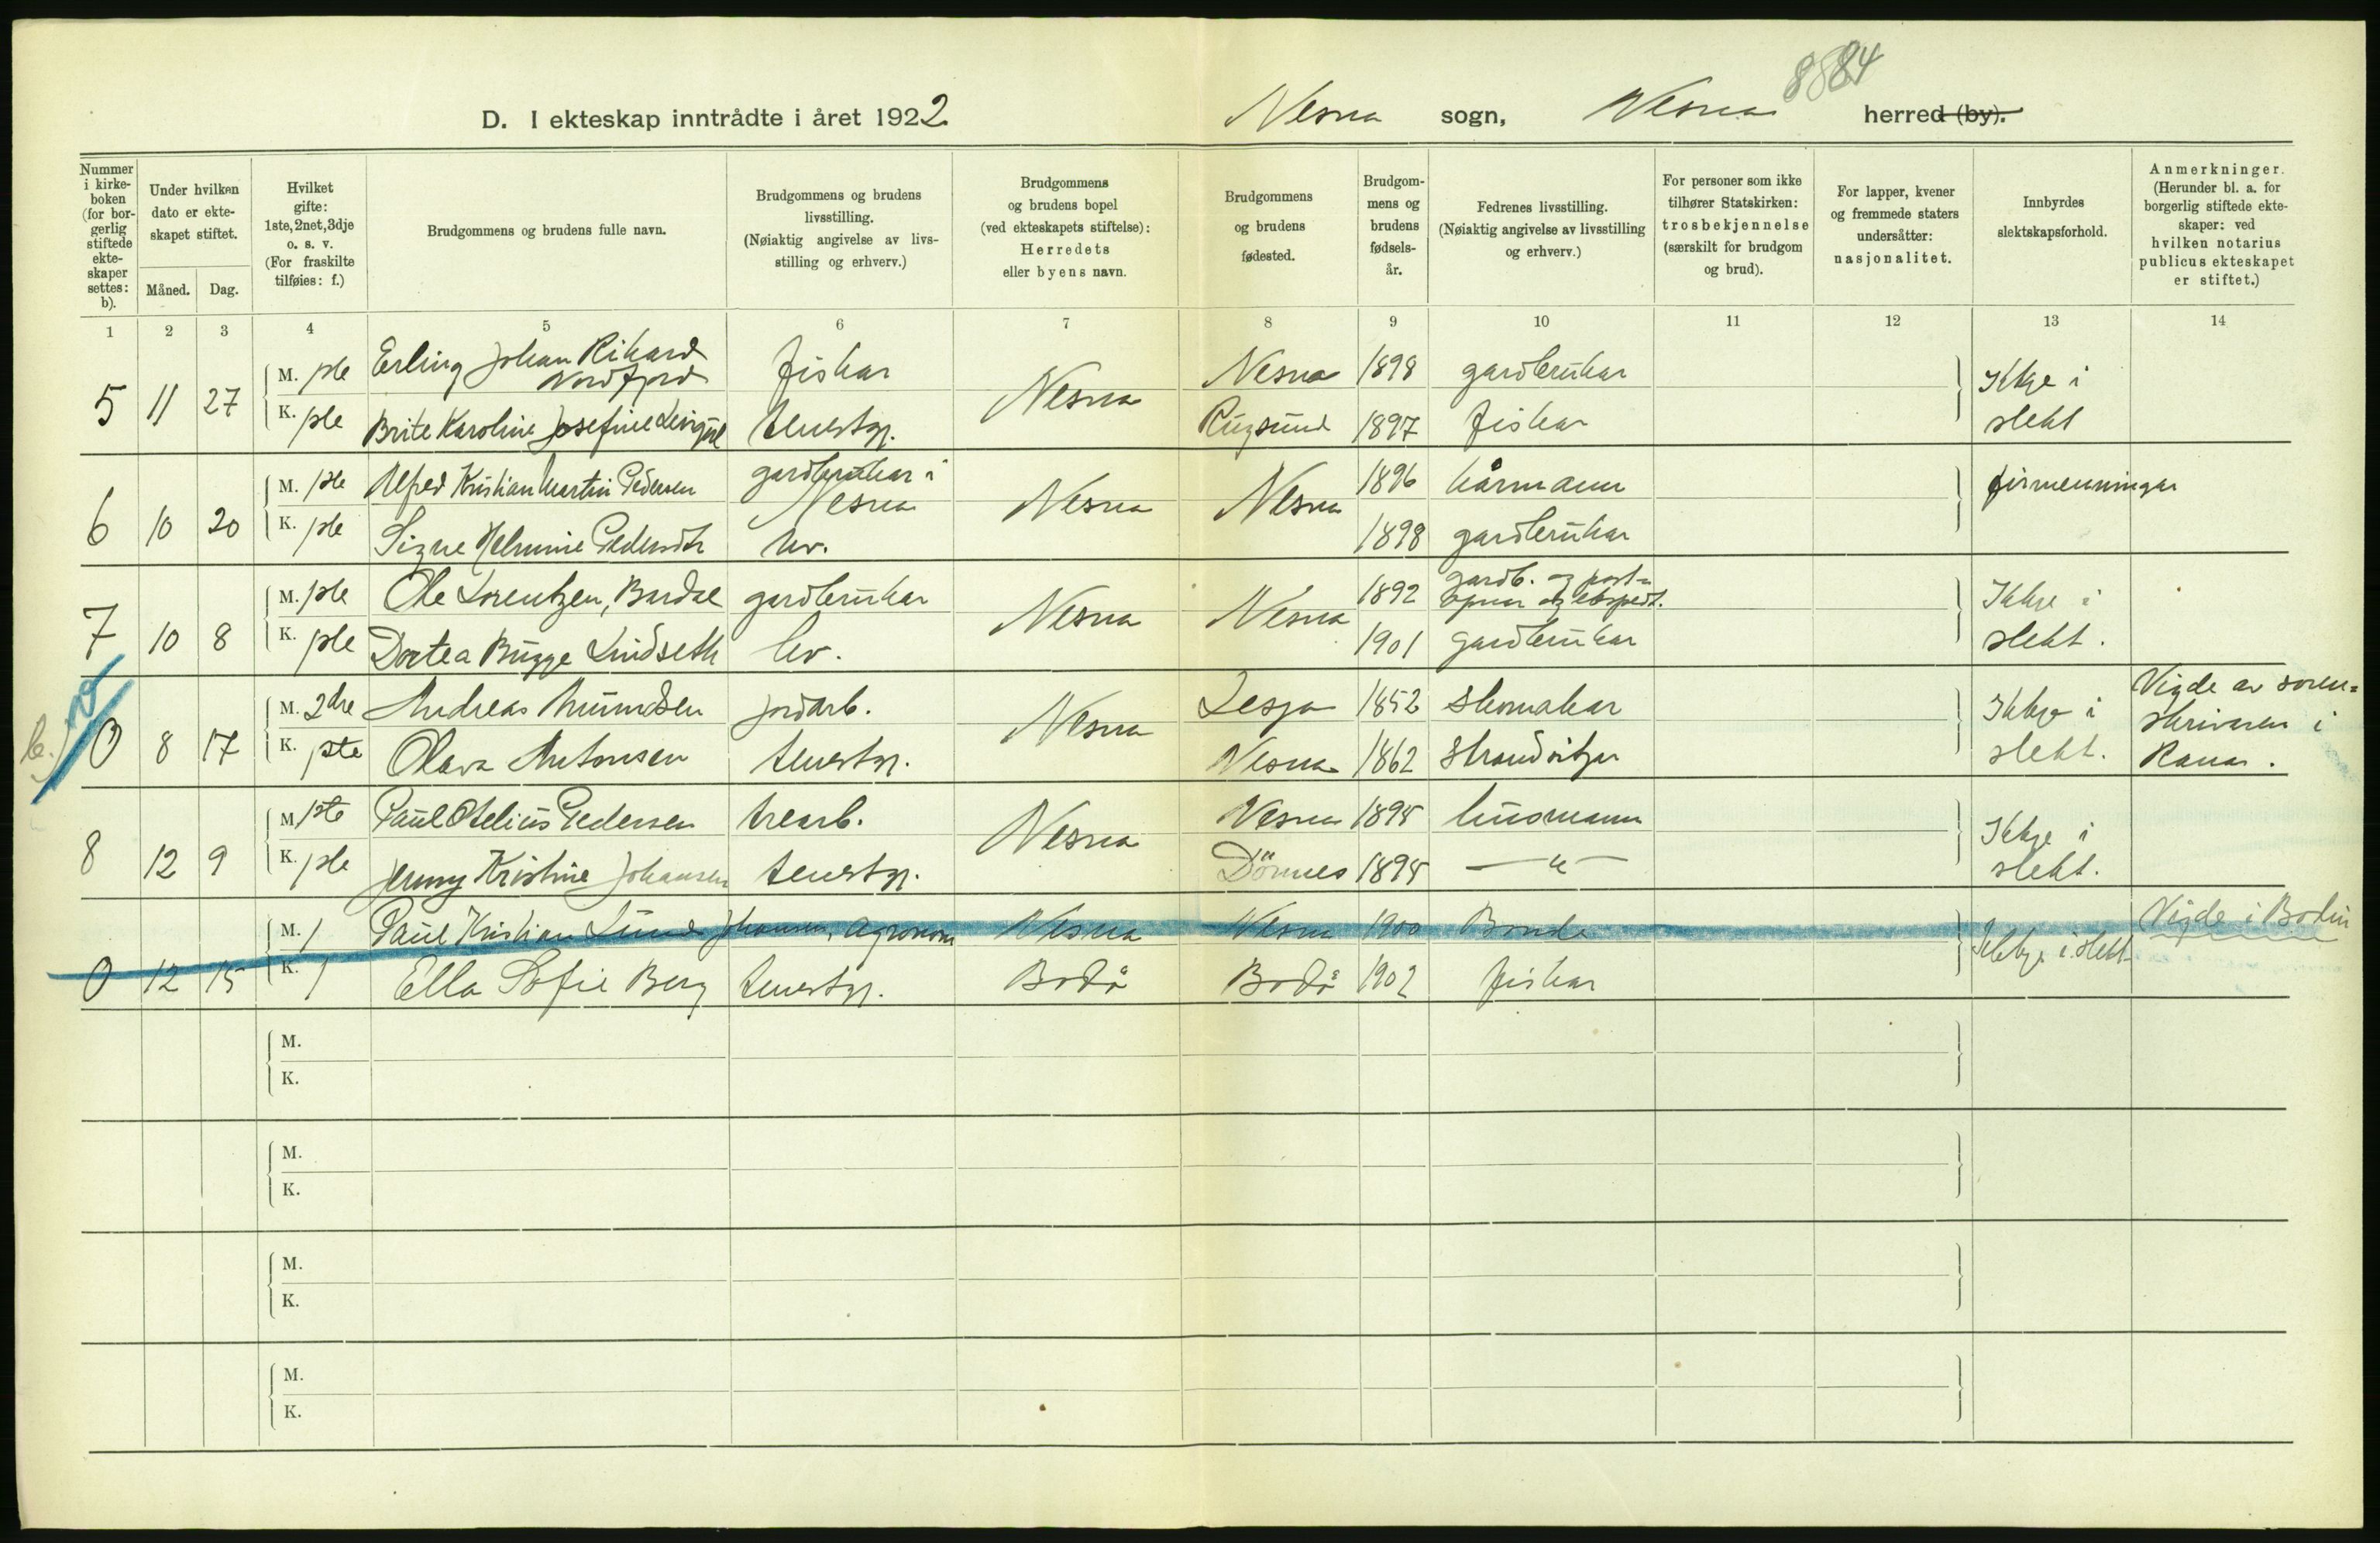 8884
D. I ekteskap inntrådte i året 1922
Nesna sogn, Nesna herred (by).
Nummer
i kirke-
boken
(for bor-
gerlig
stiftede
ekte-
skaper
settes:
b).
Under hvilken
dato er ekte-
skapet stiftet.
Måned. Dag.
Hvilket
gifte:
1ste, 2net, 3dje
o. s. v.
(For fraskilte
tilføies: f.)
Brudgommens og brudens fulle navn.
Brudgommens og brudens
livsstilling.
(Nøiaktig angivelse av livs-
stilling og erhverv.)
Brudgommens
og brudens bopel
(ved ekteskapets stiftelse):
Herredets
eller byens navn.
Brudgommens
og brudens
fødested.
Brudgom-
mens og
brudens
fødsels-
år.
Fedrenes livsstilling.
(Nøiaktig angivelse av livsstilling
og erhverv.)
For personer som ikke
tilhører Statskirken:
trosbekjennelse
(særskilt for brudgom
og brud).
For lapper, kvener
og fremmede staters
undersåtter:
nasjonalitet.
Innbyrdes
slektskapsforhold.
Anmerkninger.
(Herunder bl. a. for
borgerlig stiftede ekte-
skaper: ved
hvilken notarius
publicus ekteskapet
er stiftet.)
1 2 3 4 5 6 7 8 9 10 11 12 13 14
5 11 27
M. 1ste Erling Johan Rikard
Nordfjord fiskar Nesna Nesna 1898 gardbrukar Ikkje i
K. 1ste Brite Karoline Josefine tenestgj. Rugsund 1897 fiskar slekt
6 10 20
M. 1ste Alfred Kristian Martin Pedersen gardbrukar i
Nesna Nesna Nesna 1896 kårmann firmenningar
K. 1ste Signe Helmine Pedersdtr hv. 1898 gardbrukar
7 10 8
M. 1ste Ole Lorentzen, Bardal gardbrukar Nesna Nesna 1892 gardb. og post-
opnar og ekspedt. Ikkje i
K. 1ste Dortea Bugge Lindseth hv. 1901 gardbrukar slekt.
b.) 0 8 17
M. 2dre Andreas Amundsen jordarb. Nesna Lesja 1852 skomakar Ikkje i Vigde av soren-
skrivaren i
K. 1ste Olava Antonsen tenestgj. Nesna 1862 strandsitjar slekt. Ranar.
8 12 9
M. 1ste Paul Otelius Pedersen trearb. Nesna Nesna 1895 husmann Ikkje i
K. 1ste Jenny Kristine Johansen tenestgj. Dönnes 1895 — " — slekt.
0 12 15
M. 1 Paul Kristian Lund Johansen, agronom Nesna Nesna 1900 Bonde Ikkje i slekt Vigde i Bodin
K. 1 Ella Sofie Berg tenestgj. Bodö Bodö 1902 fiskar
M.
K.
M.
K.
M.
K.
M.
K.